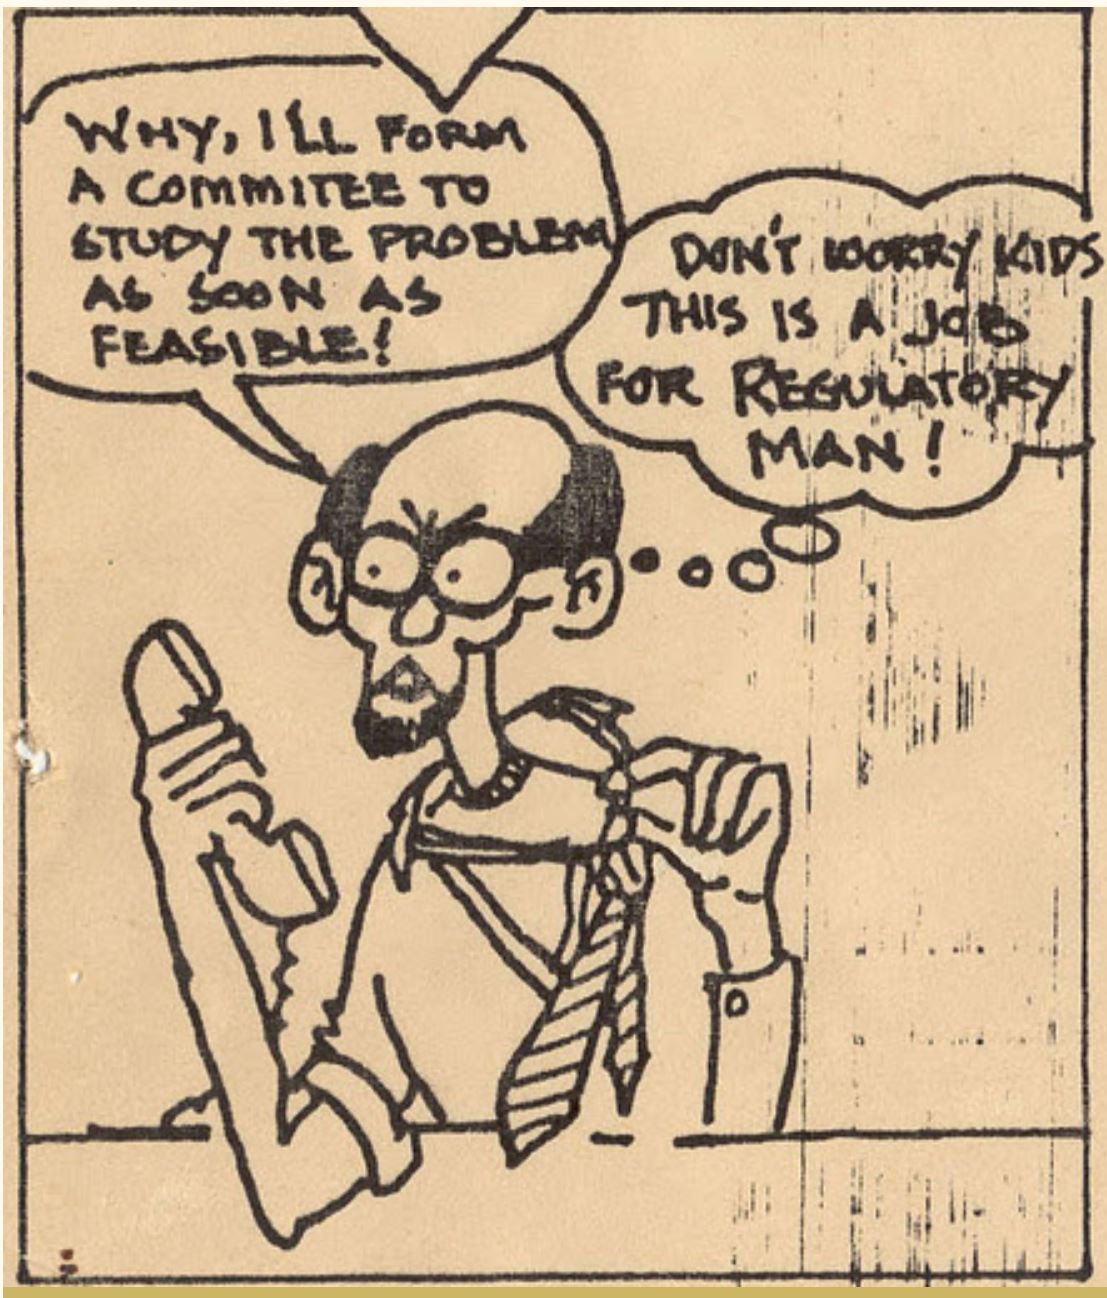 WHY, I'LL FORM
A COMMITEE TO
STUDY THE PROBLEM
AS SOON AS
FEASIBLE!
DON'T WORRY KIDS
THIS IS A JOB
FOR REGULATORY
MAN!